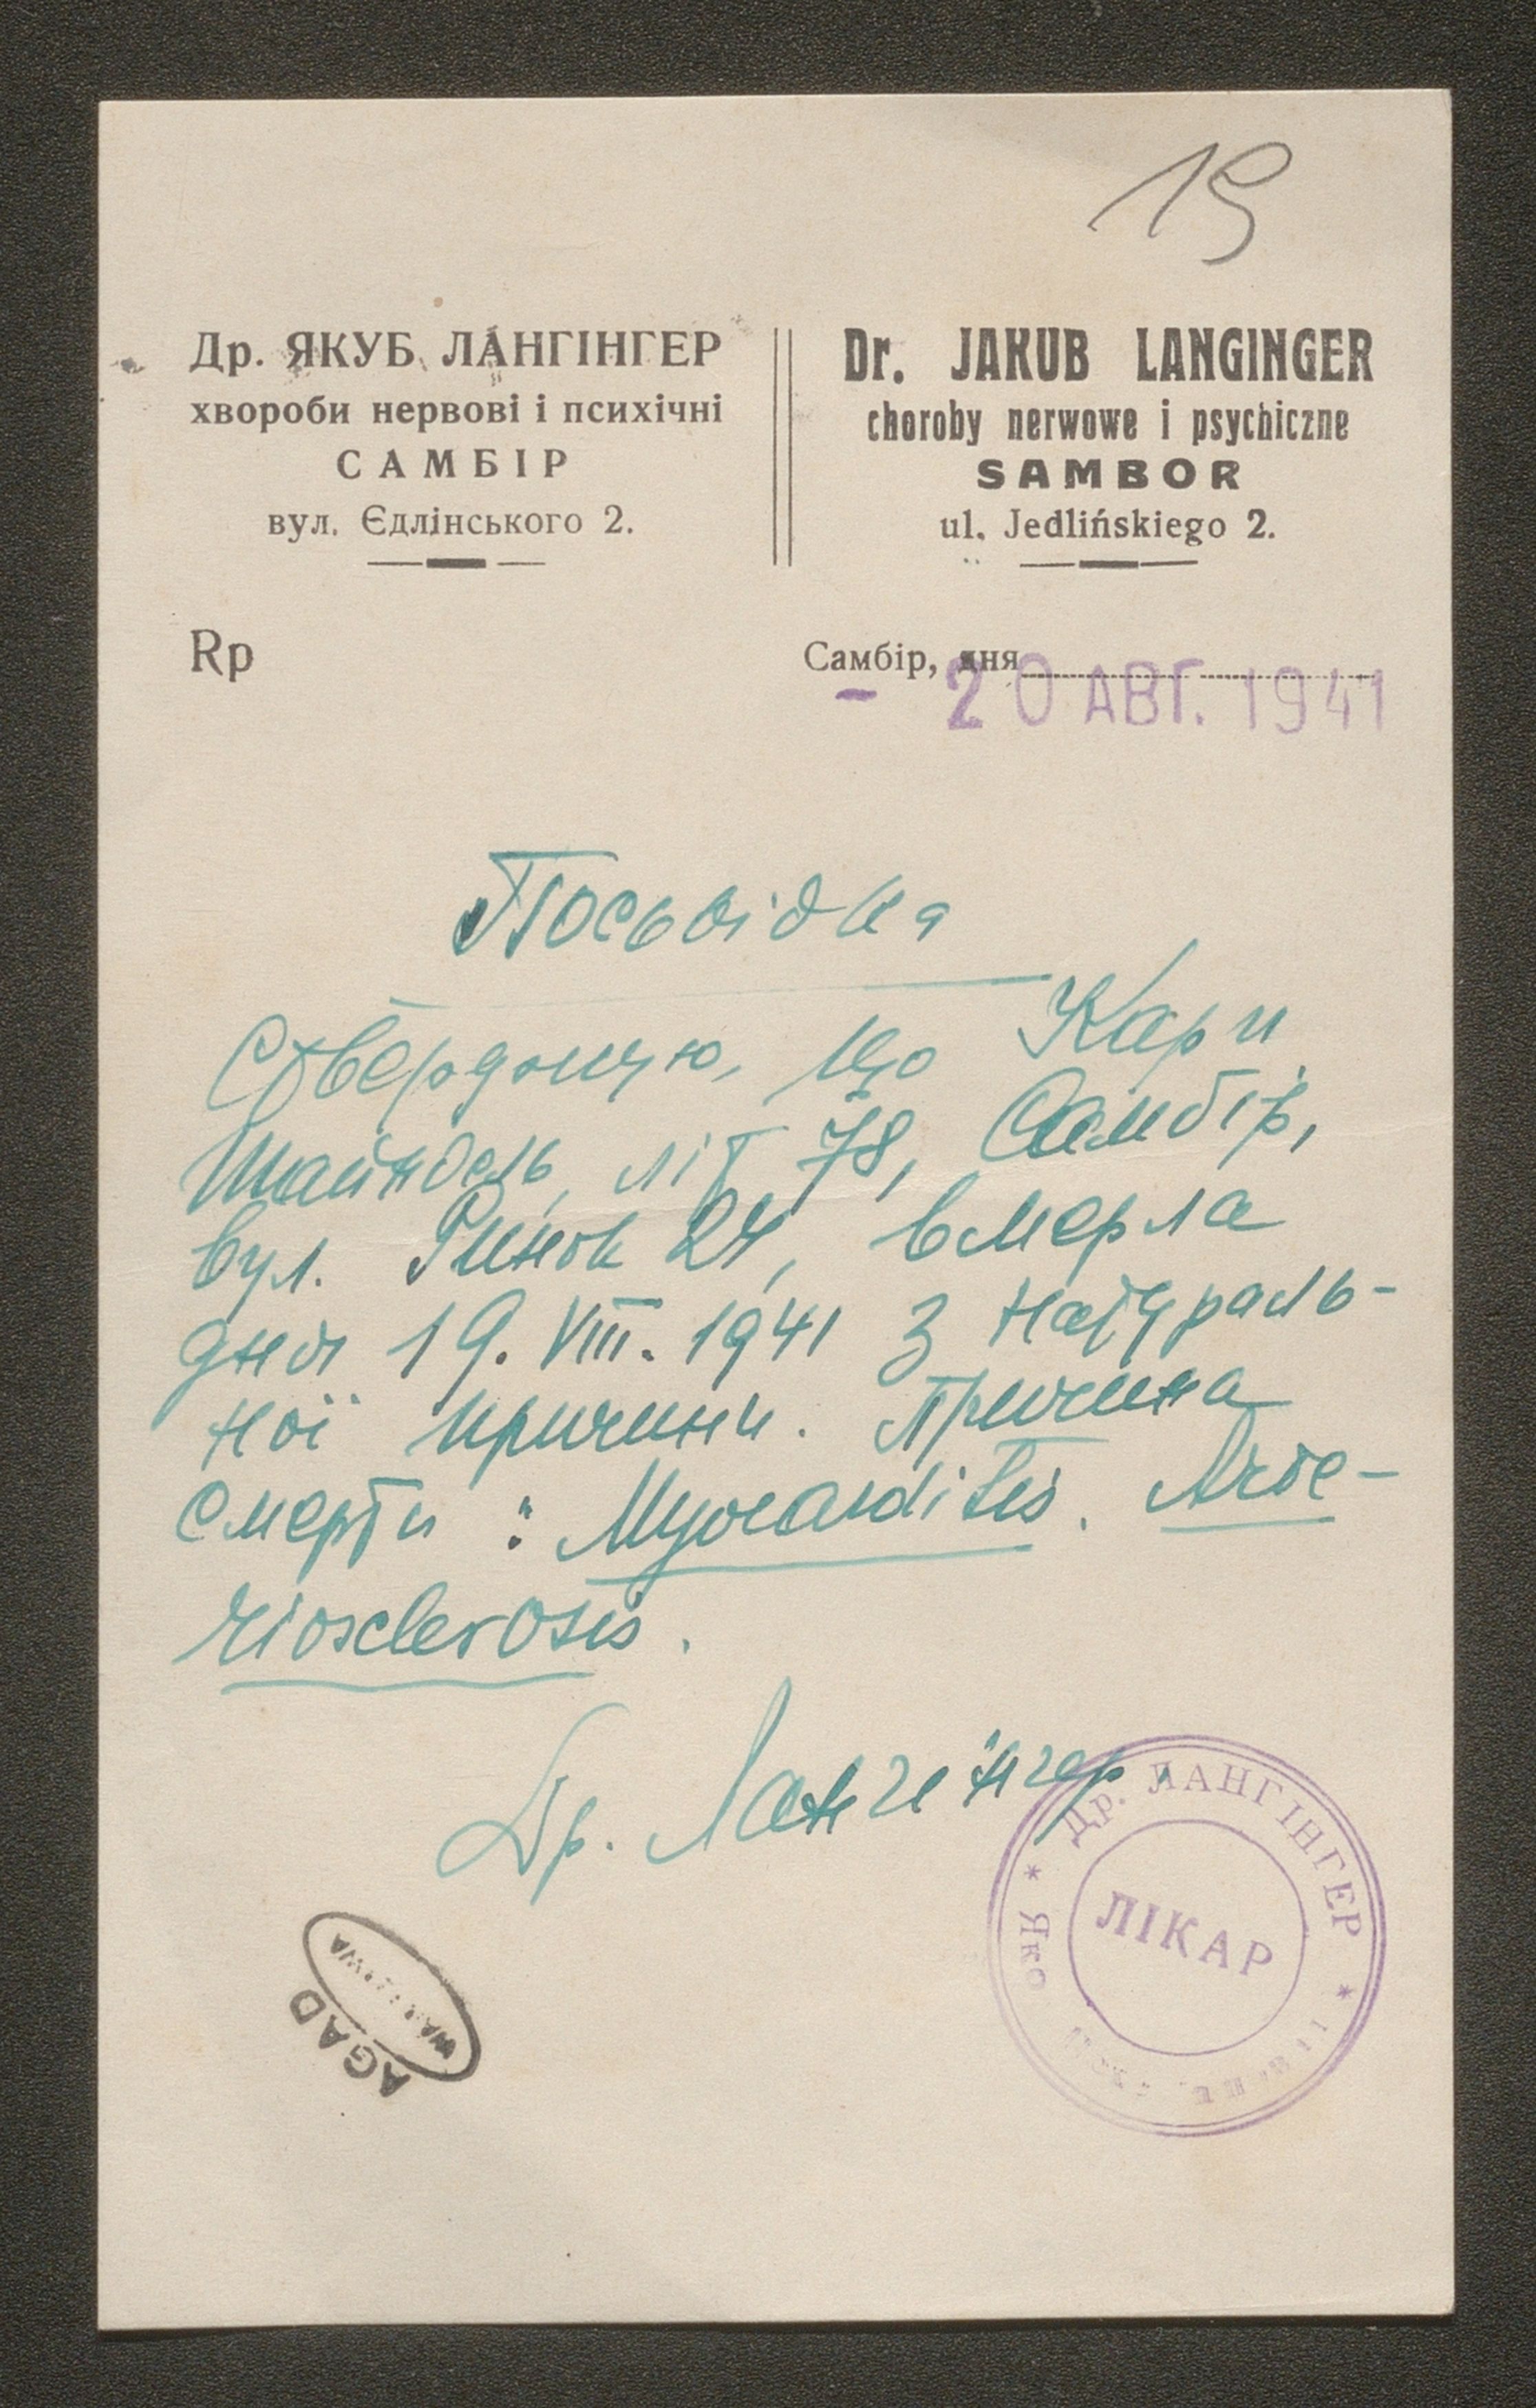 19
Др. ЯКУБ ЛАНГІНГЕР
хвороби нервові і психічні
САМБІР
вул. Єдлінського 2.
Dr. JAKUB LANGINGER
choroby nerwowe i psychiczne
SAMBOR
ul. Jedlińskiego 2.
Rp
Самбір, дня
- 20 АВГ. 1941
Посьвідка
Стверджую, що Кари
Шайндель, літ 78, Самбір,
вул. Ринок 24, вмерла
дня 19. VIII. 1941 з натураль-
ної причини. Причина
смерти: Myocarditis. Arte-
riosclerosis.
Др. Лангінгер
Др. ЛАНГІНГЕР * Яко
ЛІКАР
AGAD
WARSZAWA